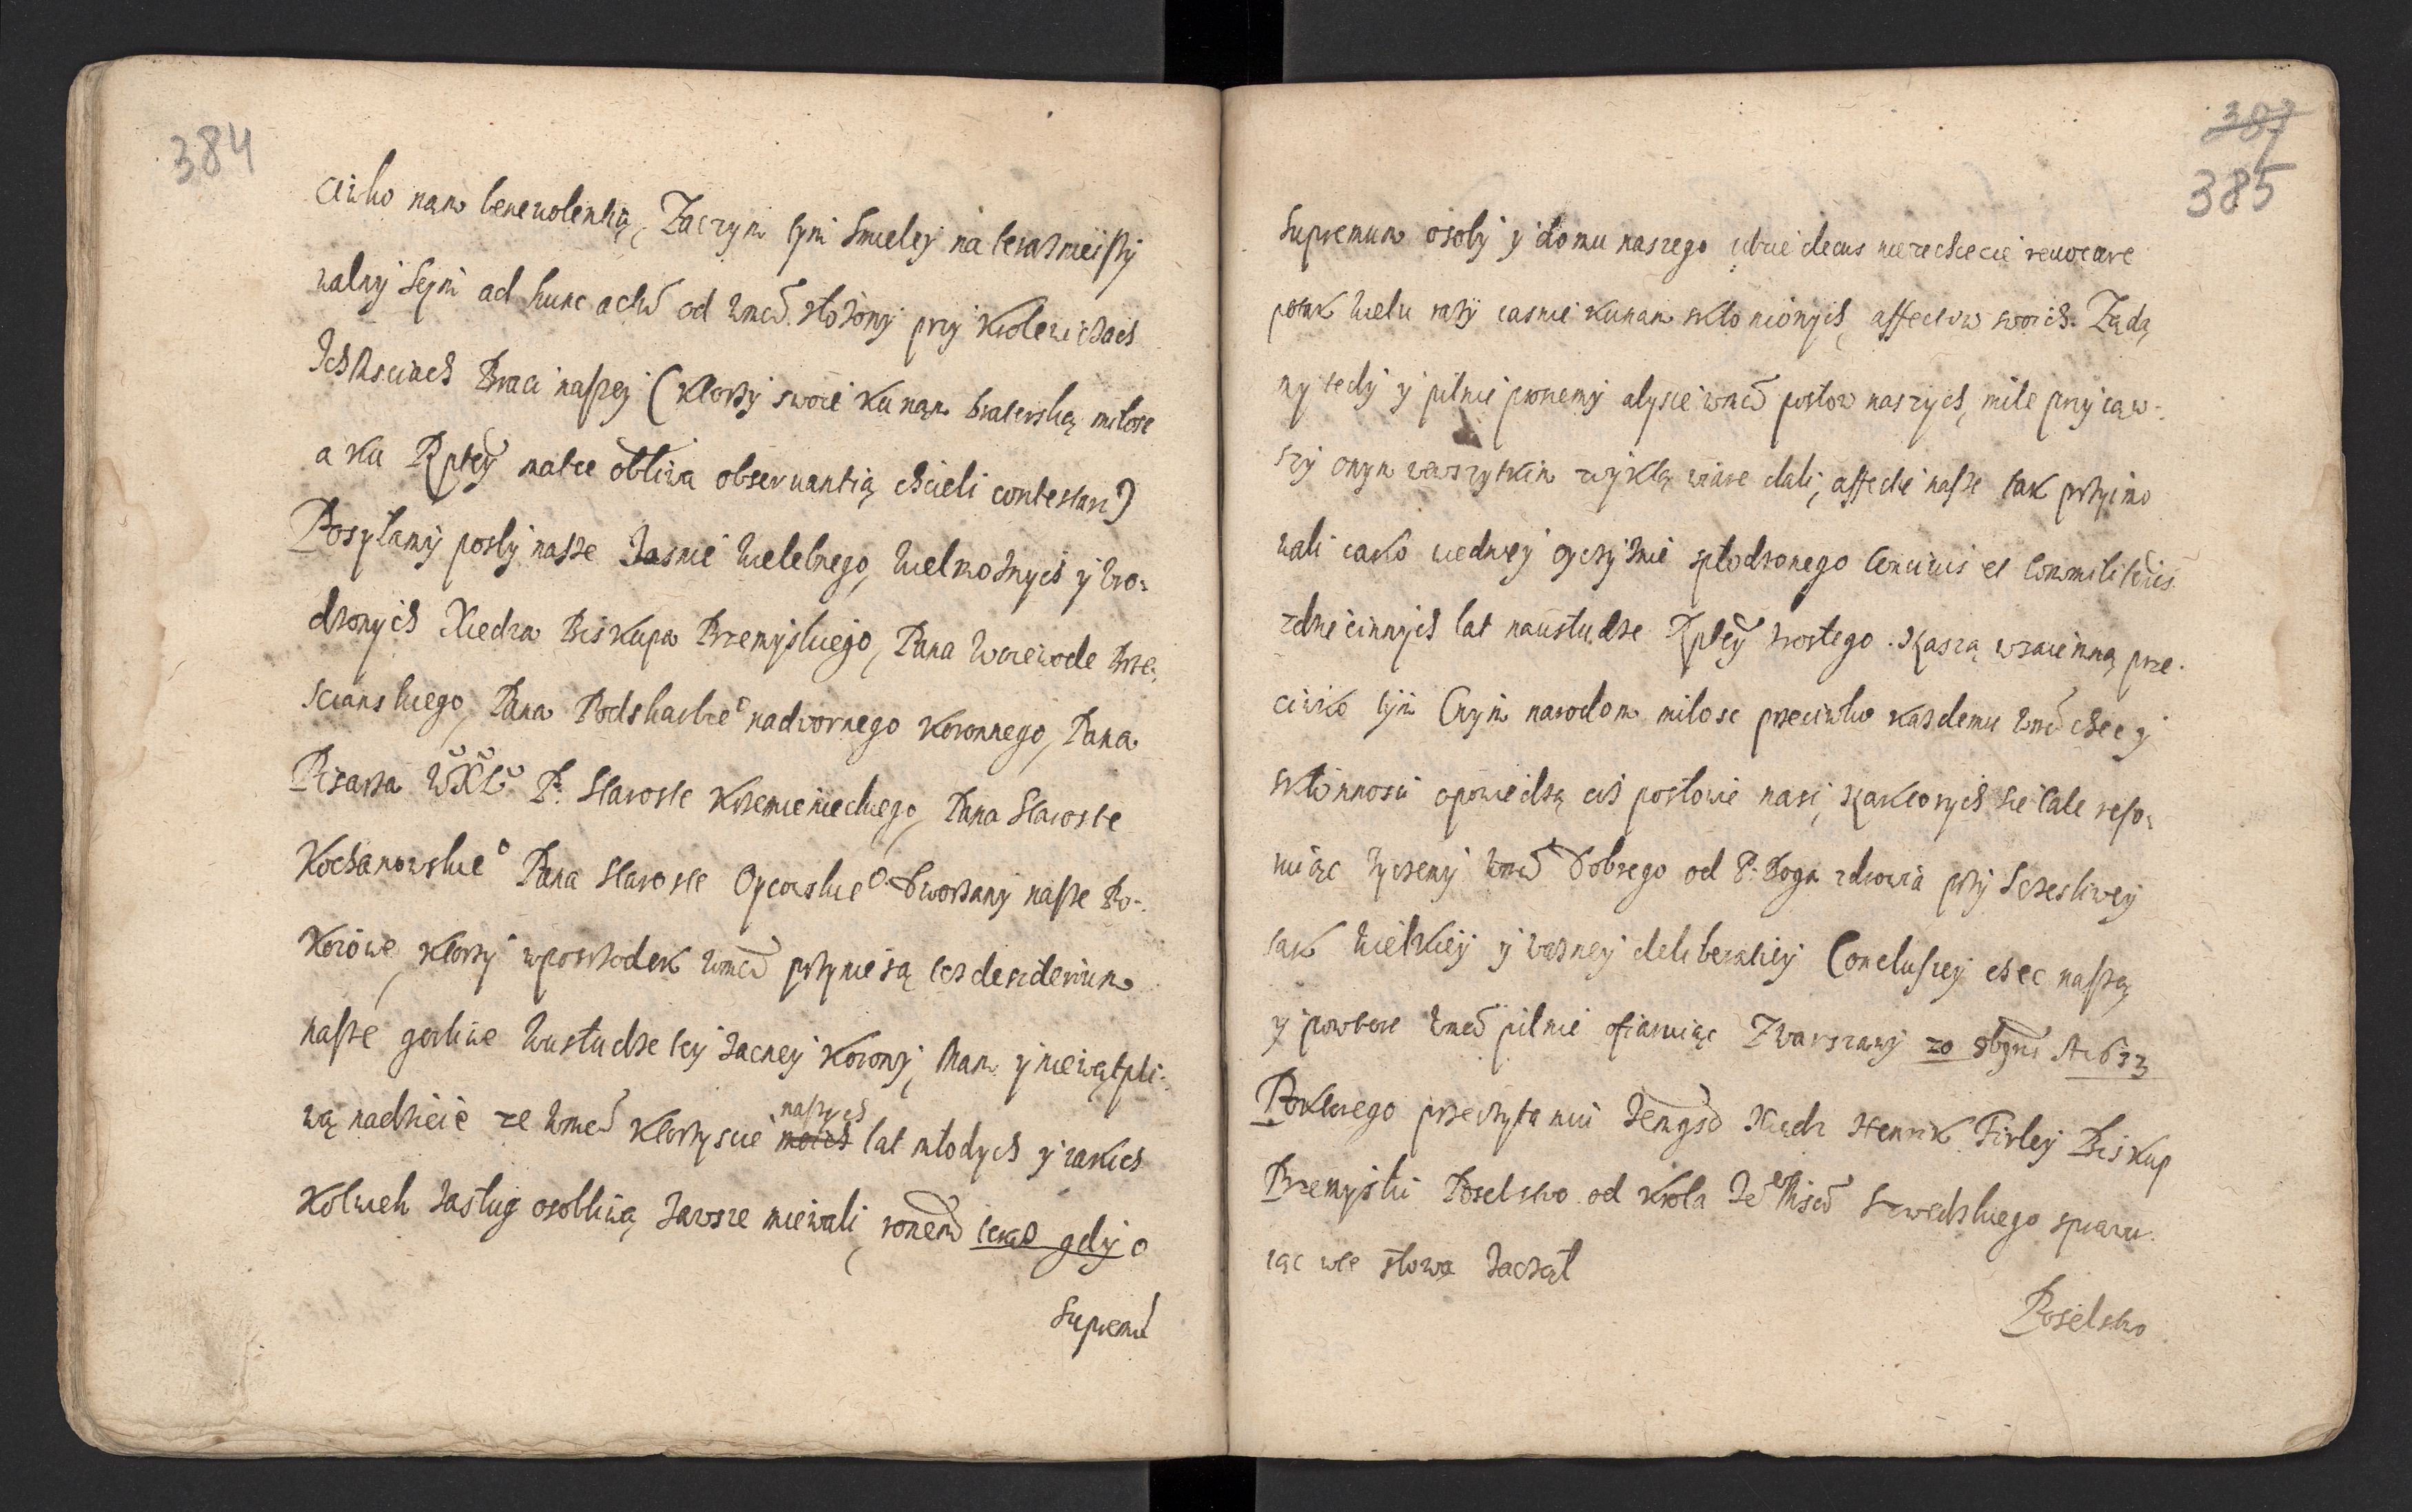 384
ciwko nąm benevolentią, Zaczym tym smieley na terasznieiszy
walny Seym ad hunc actũ od wmcw. słożony przy Krolewicżach
IchMsciach Braci naszey (ktorzy swoie ku nąm braterską miłosc
a ku Rptey matce obliva observantią chcieli contestari)
Posyłamy posły nasze Jasnie Wielebnego, Wielmożnych y Uro-
dzonych Xiedza Biskupa Przemyskiego, Pana Woiewode Brze,
scianskiego, Pana Podskarbieo nadwornego Koronnego, Pana
Pisarza WXL P. Staroste Krzemienieckiego, Pana Staroste
Kochanowskieo Pana Staroste Oycowskieo Dworzany nasze Po-
koiowe, ktorzy w posrzodek wmcw przyniesą tesz desiderium
nasze gorliwe w usłudze tey zacney Korony, Mam y niewątpli-
wą nadzieie ze wmcw ktorzyscie naszych moich lat młodych y iakich
kolwiek zasług osobliwą zawsze miewali, teras gdy o
Supremũ
387
385
Supremum osoby y domu naszego decus niezechcecie revocare
potak wielu razy iasnie ku nam skłonionych, affectow swoich. Ząda,
my tedy y pilnie prosiemy abyscie wmcw posłow naszych, mile przyiąw-
szy onym wewszytkim zwykłą wiare dali, affectie nasze tak przyimo
wali iako w iedney oyczyznie spłodzonego Concivis et Commilitonis
zdziecinnych lat na usłudze Rptey wrosłego. Naszą wzaiemną prze-
ciwko tym Cnym narodom miłosc przeciwko każdemu wmci chec y
skłonnosci opowiedzą cisz posłowie nasi, Na ktorych sie cale refe,
ruiąc życzemy wmcw dobrego od P. Boga zdrowia przy Sczesliwey
tak wielkiey y ważney deliberatiey Conclusiey chec naszą
y powtore wmcw pilnie ofiaruiąc Z Warszawy 20 8bris A 1632
Po ktorego przeczytaniu Jemgsc Xiądz Henrik Firley Biskup
Przemyski Poselstwo od Krola Jeo Msci Szwedzkiego sprawu
iąc w te słowa zaczął
Poselstwo